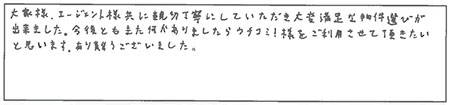 大家様、エージェント様共に親切丁寧にしていただき大変満足な物件選びが
出来ました。今後ともまた何かありましたらウチコミ!様をご利用させて頂きたい
と思います。あり難うございました。